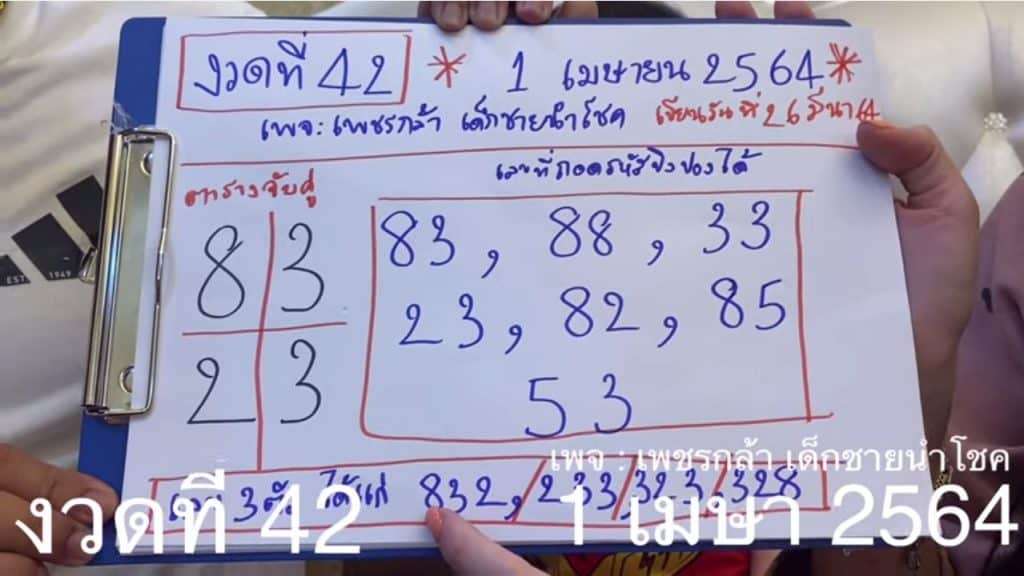 งวดที่ 42 * 1 เมษายน 2564 *
เพจ : เพชรกล้า เด็กชายนำโชค เขียนวันที่ 26 มีนา 64
ตารางจับคู่
8 3
2 3
เลขที่ถอดรหัสปิงปองได้
83 , 88 , 33
23 , 82 , 85
53
เลข 3 ตัว ได้แก่ 832, / 233 / 323 / 328
เพจ : เพชรกล้า เด็กชายนำโชค
งวดที่ 42 1 เมษา 2564
EST. 1949